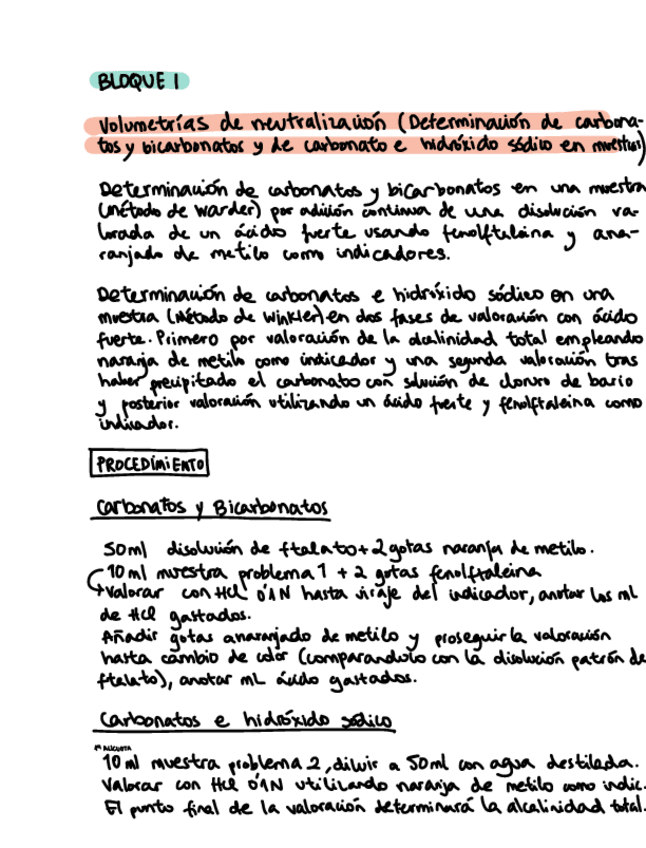 BLOQUE 1
Volumetrías de neutralización (Determinación de carbona-
tos y bicarbonatos y de carbonato e hidróxido sódico en muestras)
Determinación de carbonatos y bicarbonatos en una muestra
(método de Warder) por adición continua de una disolución va-
lorada de un ácido fuerte usando fenolftaleína y ana-
ranjado de metilo como indicadores.
Determinación de carbonatos e hidróxido sódico en una
muestra (Método de Winkler) en dos fases de valoración con ácido
fuerte. Primero por valoración de la alcalinidad total empleando
naranja de metilo como indicador y una segunda valoración tras
haber precipitado el carbonato con solución de cloruro de bario
y posterior valoración utilizando un ácido fuerte y fenolftaleina como
indicador.
PROCEDIMIENTO
Carbonatos y Bicarbonatos
50ml disolución de ftalato + 2 gotas naranja de metilo.
10 ml muestra problema 1 + 2 gotas fenolftaleina
Valorar con HCl 0'1N hasta viraje del indicador, anotar los ml
de HCl gastados.
Añadir gotas anaranjado de metilo y proseguir la valoración
hasta cambio de color (comparandolo con la disolución patrón de
ftalato), anotar mL ácido gastados.
Carbonatos e hidróxido sódico
1ª ALICUOTA
10 ml muestra problema 2, diluir a 50ml con agua destilada.
Valorar con HCl 0'1N utilizando naranja de metilo como indic.
El punto final de la valoración determinará la alcalinidad total.